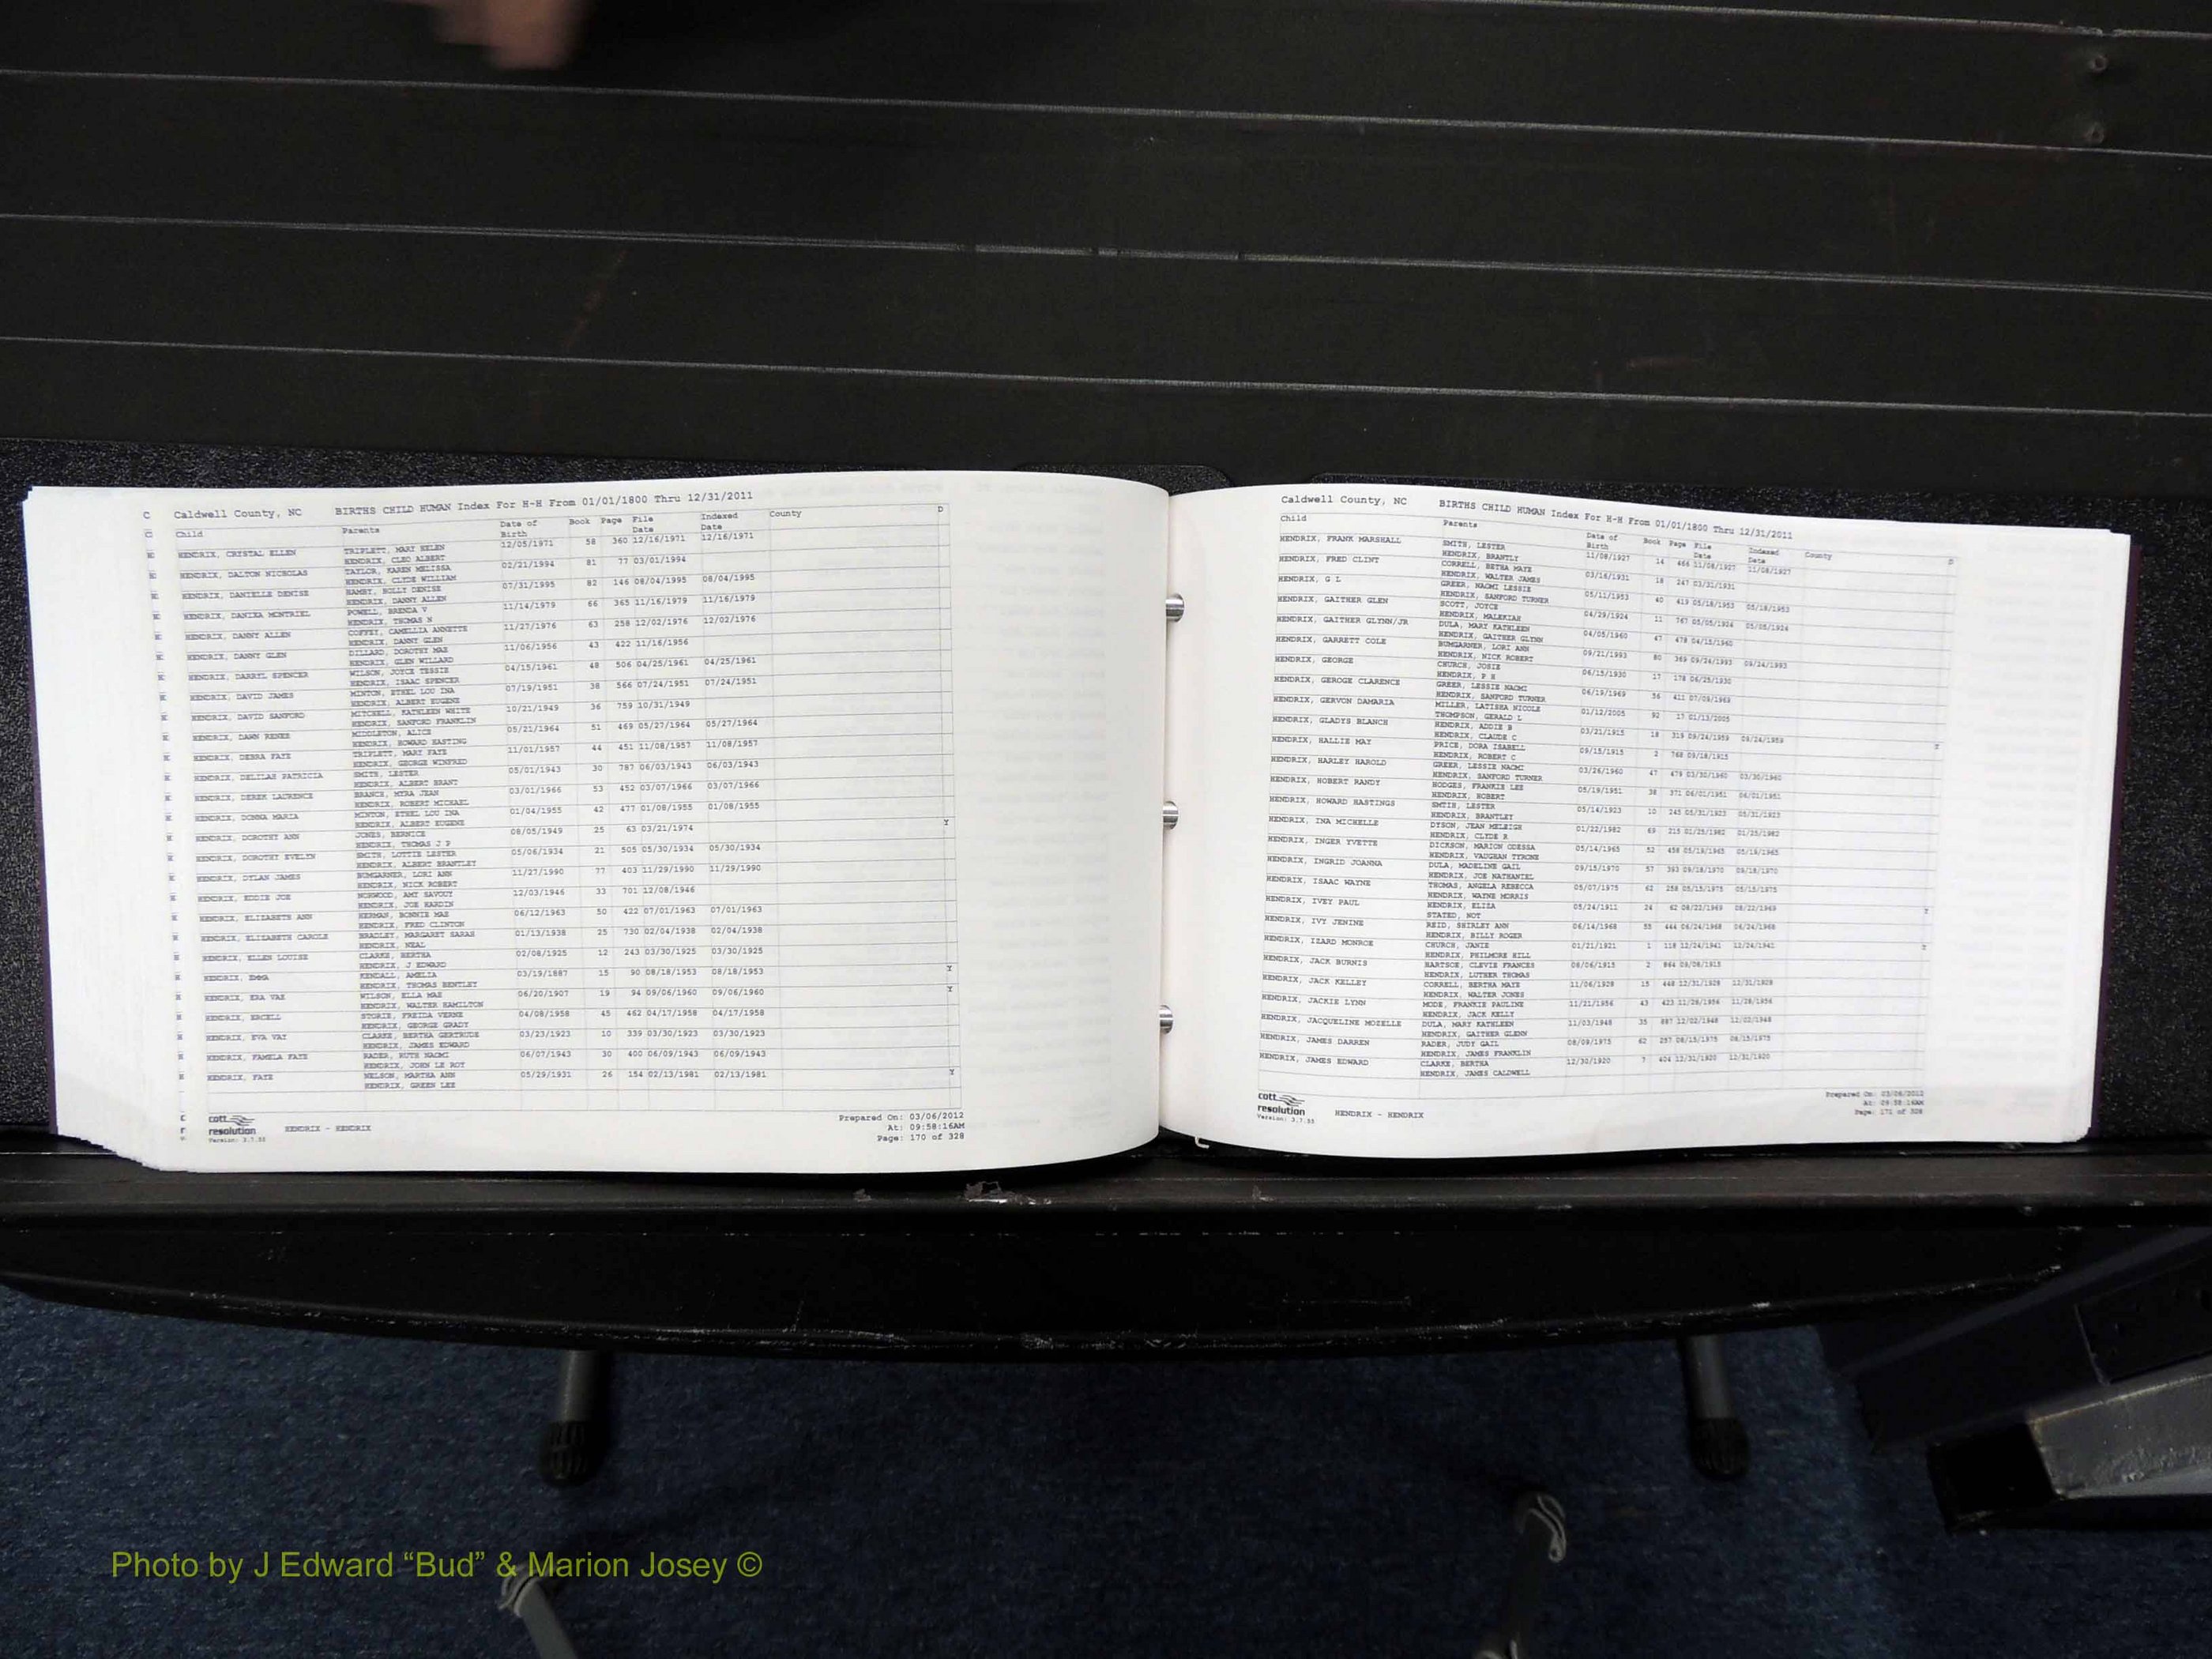 Caldwell County, NC BIRTHS CHILD HUMAN Index For H-H From 01/01/1800 Thru 12/31/2011
Child Parents Date of Birth Book Page File Date Indexed Date County D
HENDRIX, CRYSTAL ELLEN TRIPLETT, MARY HELEN 12/05/1971 58 360 12/16/1971 12/16/1971
HENDRIX, CLEO ALBERT
HENDRIX, DALTON NICHOLAS TAYLOR, KAREN MELISSA 02/21/1994 81 77 03/01/1994
HENDRIX, CLYDE WILLIAM
HENDRIX, DANIELLE DENISE HAMBY, HOLLY DENISE 07/31/1995 82 146 08/04/1995 08/04/1995
HENDRIX, DANNY ALLEN
HENDRIX, DANIXA MONTRIEL POWELL, BRENDA V 11/14/1979 66 365 11/16/1979 11/16/1979
HENDRIX, THOMAS N
HENDRIX, DANNY ALLEN COFFEY, CAMELLIA ANNETTE 11/27/1976 63 258 12/02/1976 12/02/1976
HENDRIX, DANNY GLEN
HENDRIX, DANNY GLEN DILLARD, DOROTHY MAE 11/06/1956 43 422 11/16/1956
HENDRIX, GLEN WILLARD
HENDRIX, DARRYL SPENCER WILSON, JOYCE TESSIE 04/15/1961 48 506 04/25/1961 04/25/1961
HENDRIX, ISAAC SPENCER
HENDRIX, DAVID JAMES MINTON, ETHEL LOU INA 07/19/1951 38 566 07/24/1951 07/24/1951
HENDRIX, ALBERT EUGENE
HENDRIX, DAVID SANFORD MITCHELL, KATHLEEN WHITE 10/21/1949 36 759 10/31/1949
HENDRIX, SANFORD FRANKLIN
HENDRIX, DAWN RENEE MIDDLETON, ALICE 05/21/1964 51 469 05/27/1964 05/27/1964
HENDRIX, HOWARD HASTING
HENDRIX, DEBRA FAYE TRIPLETT, MARY FAYE 11/01/1957 44 451 11/08/1957 11/08/1957
HENDRIX, GEORGE WINFRED
HENDRIX, DELILAH PATRICIA SMITH, LESTER 05/01/1943 30 787 06/03/1943 06/03/1943
HENDRIX, ALBERT BRANT
HENDRIX, DEREK LAURENCE BRANCH, MYRA JEAN 03/01/1966 53 452 03/07/1966 03/07/1966
HENDRIX, ROBERT MICHAEL
HENDRIX, DONNA MARIA MINTON, ETHEL LOU INA 01/04/1955 42 477 01/08/1955 01/08/1955
HENDRIX, ALBERT EUGENE
HENDRIX, DOROTHY ANN JONES, BERNICE 08/05/1949 25 63 03/21/1974 Y
HENDRIX, THOMAS J P
HENDRIX, DOROTHY EVELYN SMITH, LOTTIE LESTER 05/06/1934 21 505 05/30/1934 05/30/1934
HENDRIX, ALBERT BRANTLEY
HENDRIX, DYLAN JAMES BUMGARNER, LORI ANN 11/27/1990 77 403 11/29/1990 11/29/1990
HENDRIX, NICK ROBERT
HENDRIX, EDDIE JOE NORWOOD, AMY SAVOUY 12/03/1946 33 701 12/08/1946
HENDRIX, JOE HARDIN
HENDRIX, ELIZABETH ANN HERMAN, BONNIE MAE 06/12/1963 50 422 07/01/1963 07/01/1963
HENDRIX, FRED CLINTON
HENDRIX, ELIZABETH CAROLE BRADLEY, MARGARET SARAH 01/13/1938 25 730 02/04/1938 02/04/1938
HENDRIX, NEAL
HENDRIX, ELLEN LOUISE CLARKE, BERTHA 02/08/1925 12 243 03/30/1925 03/30/1925
HENDRIX, J EDWARD
HENDRIX, EMMA KENDALL, AMELIA 03/19/1887 15 90 08/18/1953 08/18/1953 Y
HENDRIX, THOMAS BENTLEY
HENDRIX, ERA VAE WILSON, ELLA MAE 06/20/1907 19 94 09/06/1960 09/06/1960 Y
HENDRIX, WALTER HAMILTON
HENDRIX, ERCELL STORIE, FREIDA VERNE 04/08/1958 45 462 04/17/1958 04/17/1958
HENDRIX, GEORGE GRADY
HENDRIX, EVA VAY CLARKE, BERTHA GERTRUDE 03/23/1923 10 339 03/30/1923 03/30/1923
HENDRIX, JAMES EDWARD
HENDRIX, FAMELA FAYE RADER, RUTH NAOMI 06/07/1943 30 400 06/09/1943 06/09/1943
HENDRIX, JOHN LE ROY
HENDRIX, FAYE NELSON, MARTHA ANN 05/29/1931 26 154 02/13/1981 02/13/1981 Y
HENDRIX, GREEN LEE
cott resolution
Version: 3.7.53
HENDRIX - HENDRIX
Prepared On: 03/06/2012
At: 09:58:16AM
Page: 170 of 328
Caldwell County, NC BIRTHS CHILD HUMAN Index For H-H From 01/01/1800 Thru 12/31/2011
Child Parents Date of Birth Book Page File Date Indexed Date County D
HENDRIX, FRANK MARSHALL SMITH, LESTER 11/08/1927 14 466 11/08/1927 11/08/1927
HENDRIX, BRANTLY
HENDRIX, FRED CLINT CORRELL, BETHA MAYE 03/16/1931 18 247 03/31/1931
HENDRIX, WALTER JAMES
HENDRIX, G L GREER, NAOMI LESSIE 05/11/1953 40 419 05/18/1953 05/18/1953
HENDRIX, SANFORD TURNER
HENDRIX, GAITHER GLEN SCOTT, JOYCE 04/29/1924 11 767 05/05/1924 05/05/1924
HENDRIX, MALEKIAH
HENDRIX, GAITHER GLYNN/JR DULA, MARY KATHLEEN 04/05/1960 47 478 04/15/1960
HENDRIX, GAITHER GLYNN
HENDRIX, GARRETT COLE BUMGARNER, LORI ANN 09/21/1993 80 369 09/24/1993 09/24/1993
HENDRIX, NICK ROBERT
HENDRIX, GEORGE CHURCH, JOSIE 06/15/1930 17 178 06/25/1930
HENDRIX, P H
HENDRIX, GEROGE CLARENCE GREER, LESSIE NAOMI 06/19/1969 56 411 07/09/1969
HENDRIX, SANFORD TURNER
HENDRIX, GERVON DAMARIA MILLER, LATISHA NICOLE 01/12/2005 92 17 01/13/2005
THOMPSON, GERALD L
HENDRIX, GLADYS BLANCH HENDRIX, ADDIE B 03/21/1915 18 319 09/24/1959 09/24/1959 Y
HENDRIX, CLAUDE C
HENDRIX, HALLIE MAY PRICE, DORA ISABELL 09/15/1915 2 768 09/18/1915
HENDRIX, ROBERT C
HENDRIX, HARLEY HAROLD GREER, LESSIE NAOMI 03/26/1960 47 479 03/30/1960 03/30/1960
HENDRIX, SANFORD TURNER
HENDRIX, HOBERT RANDY HODGES, FRANKIE LEE 05/19/1951 38 371 06/01/1951 06/01/1951
HENDRIX, HOBERT
HENDRIX, HOWARD HASTINGS SMTIH, LESTER 05/14/1923 10 245 05/31/1923 05/31/1923
HENDRIX, BRANTLEY
HENDRIX, INA MICHELLE DYSON, JEAN MELEIGH 01/22/1982 69 215 01/25/1982 01/25/1982
HENDRIX, CLYDE R
HENDRIX, INGER YVETTE DICKSON, MARION ODESSA 05/14/1965 52 458 05/19/1965 05/19/1965
HENDRIX, VAUGHAN TYRONE
HENDRIX, INGRID JOANNA DULA, MADELINE GAIL 09/15/1970 57 393 09/18/1970 09/18/1970
HENDRIX, JOE NATHANIEL
HENDRIX, ISAAC WAYNE THOMAS, ANGELA REBECCA 05/07/1975 62 258 05/15/1975 05/15/1975
HENDRIX, WAYNE MORRIS
HENDRIX, IVEY PAUL HENDRIX, ELIZA 05/24/1911 24 62 08/22/1969 08/22/1969 Y
STATED, NOT
HENDRIX, IVY JENINE REID, SHIRLEY ANN 06/14/1968 55 444 06/24/1968 06/24/1968
HENDRIX, BILLY ROGER
HENDRIX, IZARD MONROE CHURCH, JANIE 01/21/1921 1 118 12/24/1941 12/24/1941
HENDRIX, PHILMORE HILL
HENDRIX, JACK BURNIS HARTSOE, CLEVIE FRANCES 08/06/1915 2 864 09/08/1915
HENDRIX, LUTHER THOMAS
HENDRIX, JACK KELLEY CORRELL, BERTHA MAYE 11/06/1928 15 448 12/31/1928 12/31/1928
HENDRIX, WALTER JONES
HENDRIX, JACKIE LYNN MODE, FRANKIE PAULINE 11/21/1956 43 423 11/28/1956 11/28/1956
HENDRIX, JACK KELLY
HENDRIX, JACQUELINE MOZELLE DULA, MARY KATHLEEN 11/03/1948 35 887 12/02/1948 12/02/1948
HENDRIX, GAITHER GLENN
HENDRIX, JAMES DARREN RADER, JUDY GAIL 08/09/1975 62 257 08/15/1975 08/15/1975
HENDRIX, JAMES FRANKLIN
HENDRIX, JAMES EDWARD CLARKE, BERTHA 12/30/1920 7 404 12/31/1920 12/31/1920
HENDRIX, JAMES CALDWELL
cott resolution
Version: 3.7.53
HENDRIX - HENDRIX
Prepared On: 03/06/2012
At: 09:58:16AM
Page: 171 of 328
Photo by J Edward “Bud” & Marion Josey ©